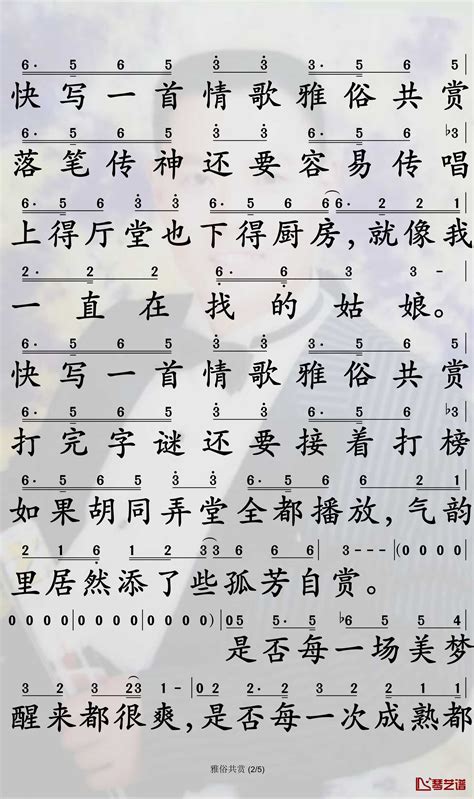 6· 5 6 5 3 3 3· 5 6 5
快写一首情歌雅俗共赏
6· 5 6 5 3· 3 6· 5 6 ♭3
落笔传神还要容易传唱
6· 5 6 5 3 3 6· 5 6 6· 2 2 1
上得厅堂也下得厨房,就像我
2· 2 2 6· 6 3 3 -
一直在找的姑娘。
6· 5 6 5 3 3 3· 5 6 5
快写一首情歌雅俗共赏
6· 5 6 5 3· 3 6· 5 6 ♭3
打完字谜还要接着打榜
6· 5 6 5 3· 3 6· 5 6 6 2 1
如果胡同弄堂全都播放,气韵
2 1 6 1 2 3 3 6 6 5 3 - - (0 0 0 0
里居然添了些孤芳自赏。
0 0 0 0 0 0 0 0 0 0 0 0) 05 5· 5 ♭6 5 5 4
是否每一场美梦
3 3 2 3 23 1 - 0 2 2· 2 3 2 2 1
醒来都很爽,是否每一次成熟都
雅俗共赏 (2/5)
琴艺谱